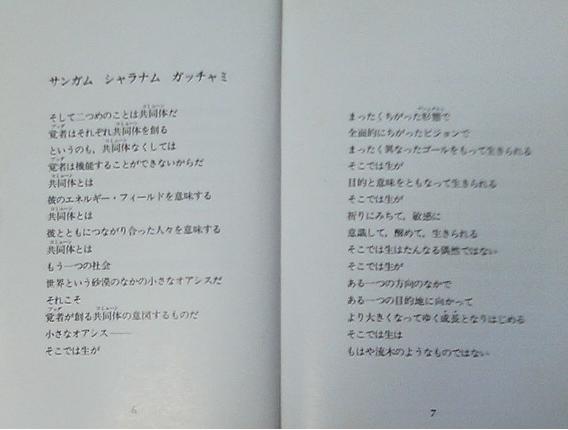 サンガム　シャラナム　ガッチャミ
そして二つめのことは共同体だ
覚者はそれぞれ共同体を創る
というのも、共同体なくしては
覚者は機能することができないからだ
共同体とは
彼のエネルギー・フィールドを意味する
共同体とは
彼とともにつながり合った人々を意味する
共同体とは
もう一つの社会
世界という砂漠のなかの小さなオアシスだ
それこそ
覚者が創る共同体の意図するものだ
小さなオアシス――
そこでは生が
6
まったくちがった形態で
全面的にちがったビジョンで
まったく異なったゴールをもって生きられる
そこでは生が
目的と意味をともなって生きられる
そこでは生が
祈りにみちて，敏感に
意識して，醒めて，生きられる
そこでは生はたんなる偶然ではない
そこでは生が
ある一つの方向のなかで
ある一つの目的地に向かって
より大きくなってゆく成長となりはじめる
そこでは生は
もはや流木のようなものではない
7